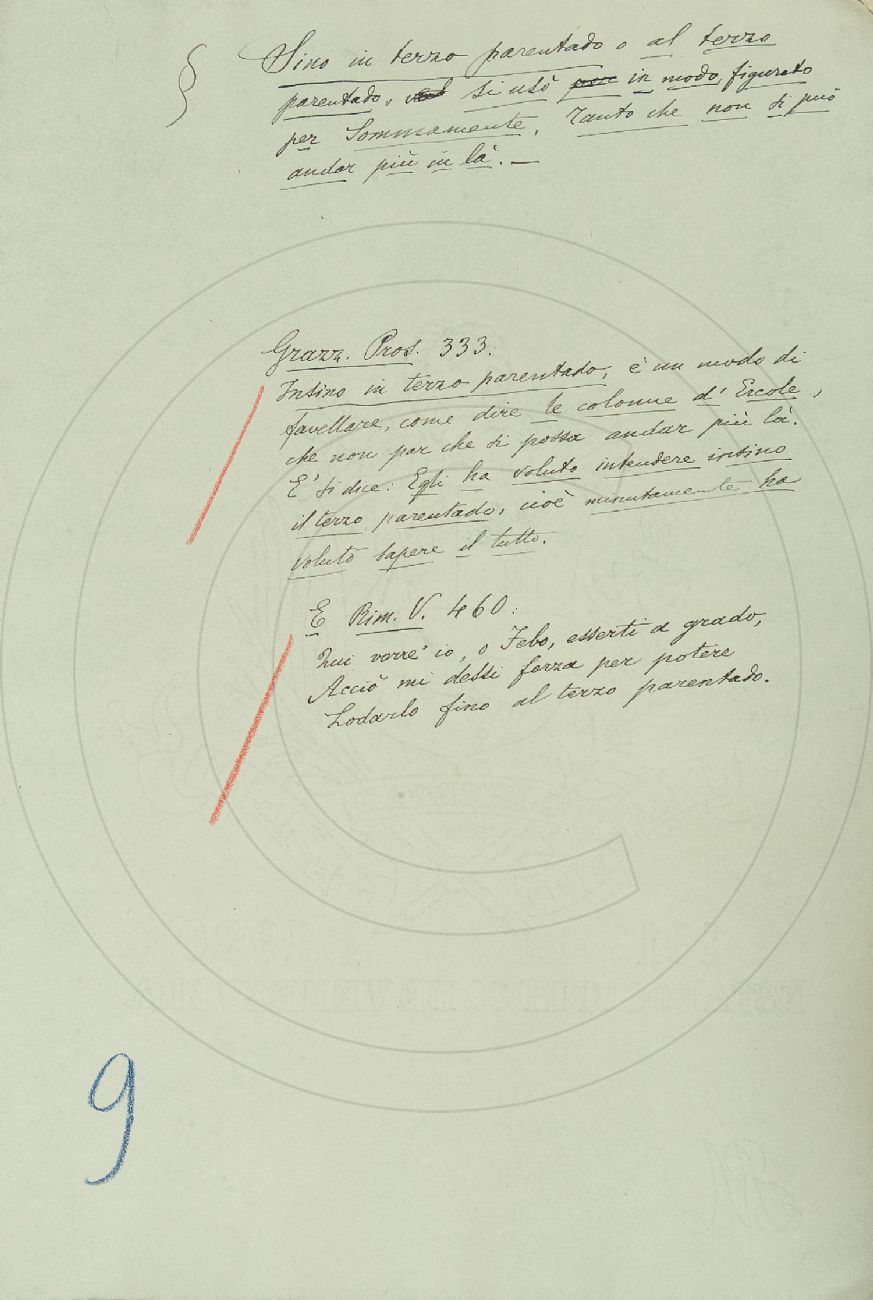 § Sino in terzo parentado o al terzo
parentado, si usò in modo figurato
per Sommamente, Tanto che non si può
andar più in là. —
Grazz. Pros. 333:
Insino in terzo parentado, è un modo di
favellare, come dire le colonne d'Ercole,
che non par che si possa andar più là.
E' si dice: Egli ha voluto intendere insino
il terzo parentado, cioè minutamente ha
voluto sapere il tutto.
E Rim. V. 460:
Qui vorre' io, o Febo, esserti a grado,
Acciò mi dessi forza per potere
Lodarlo fino al terzo parentado.
9